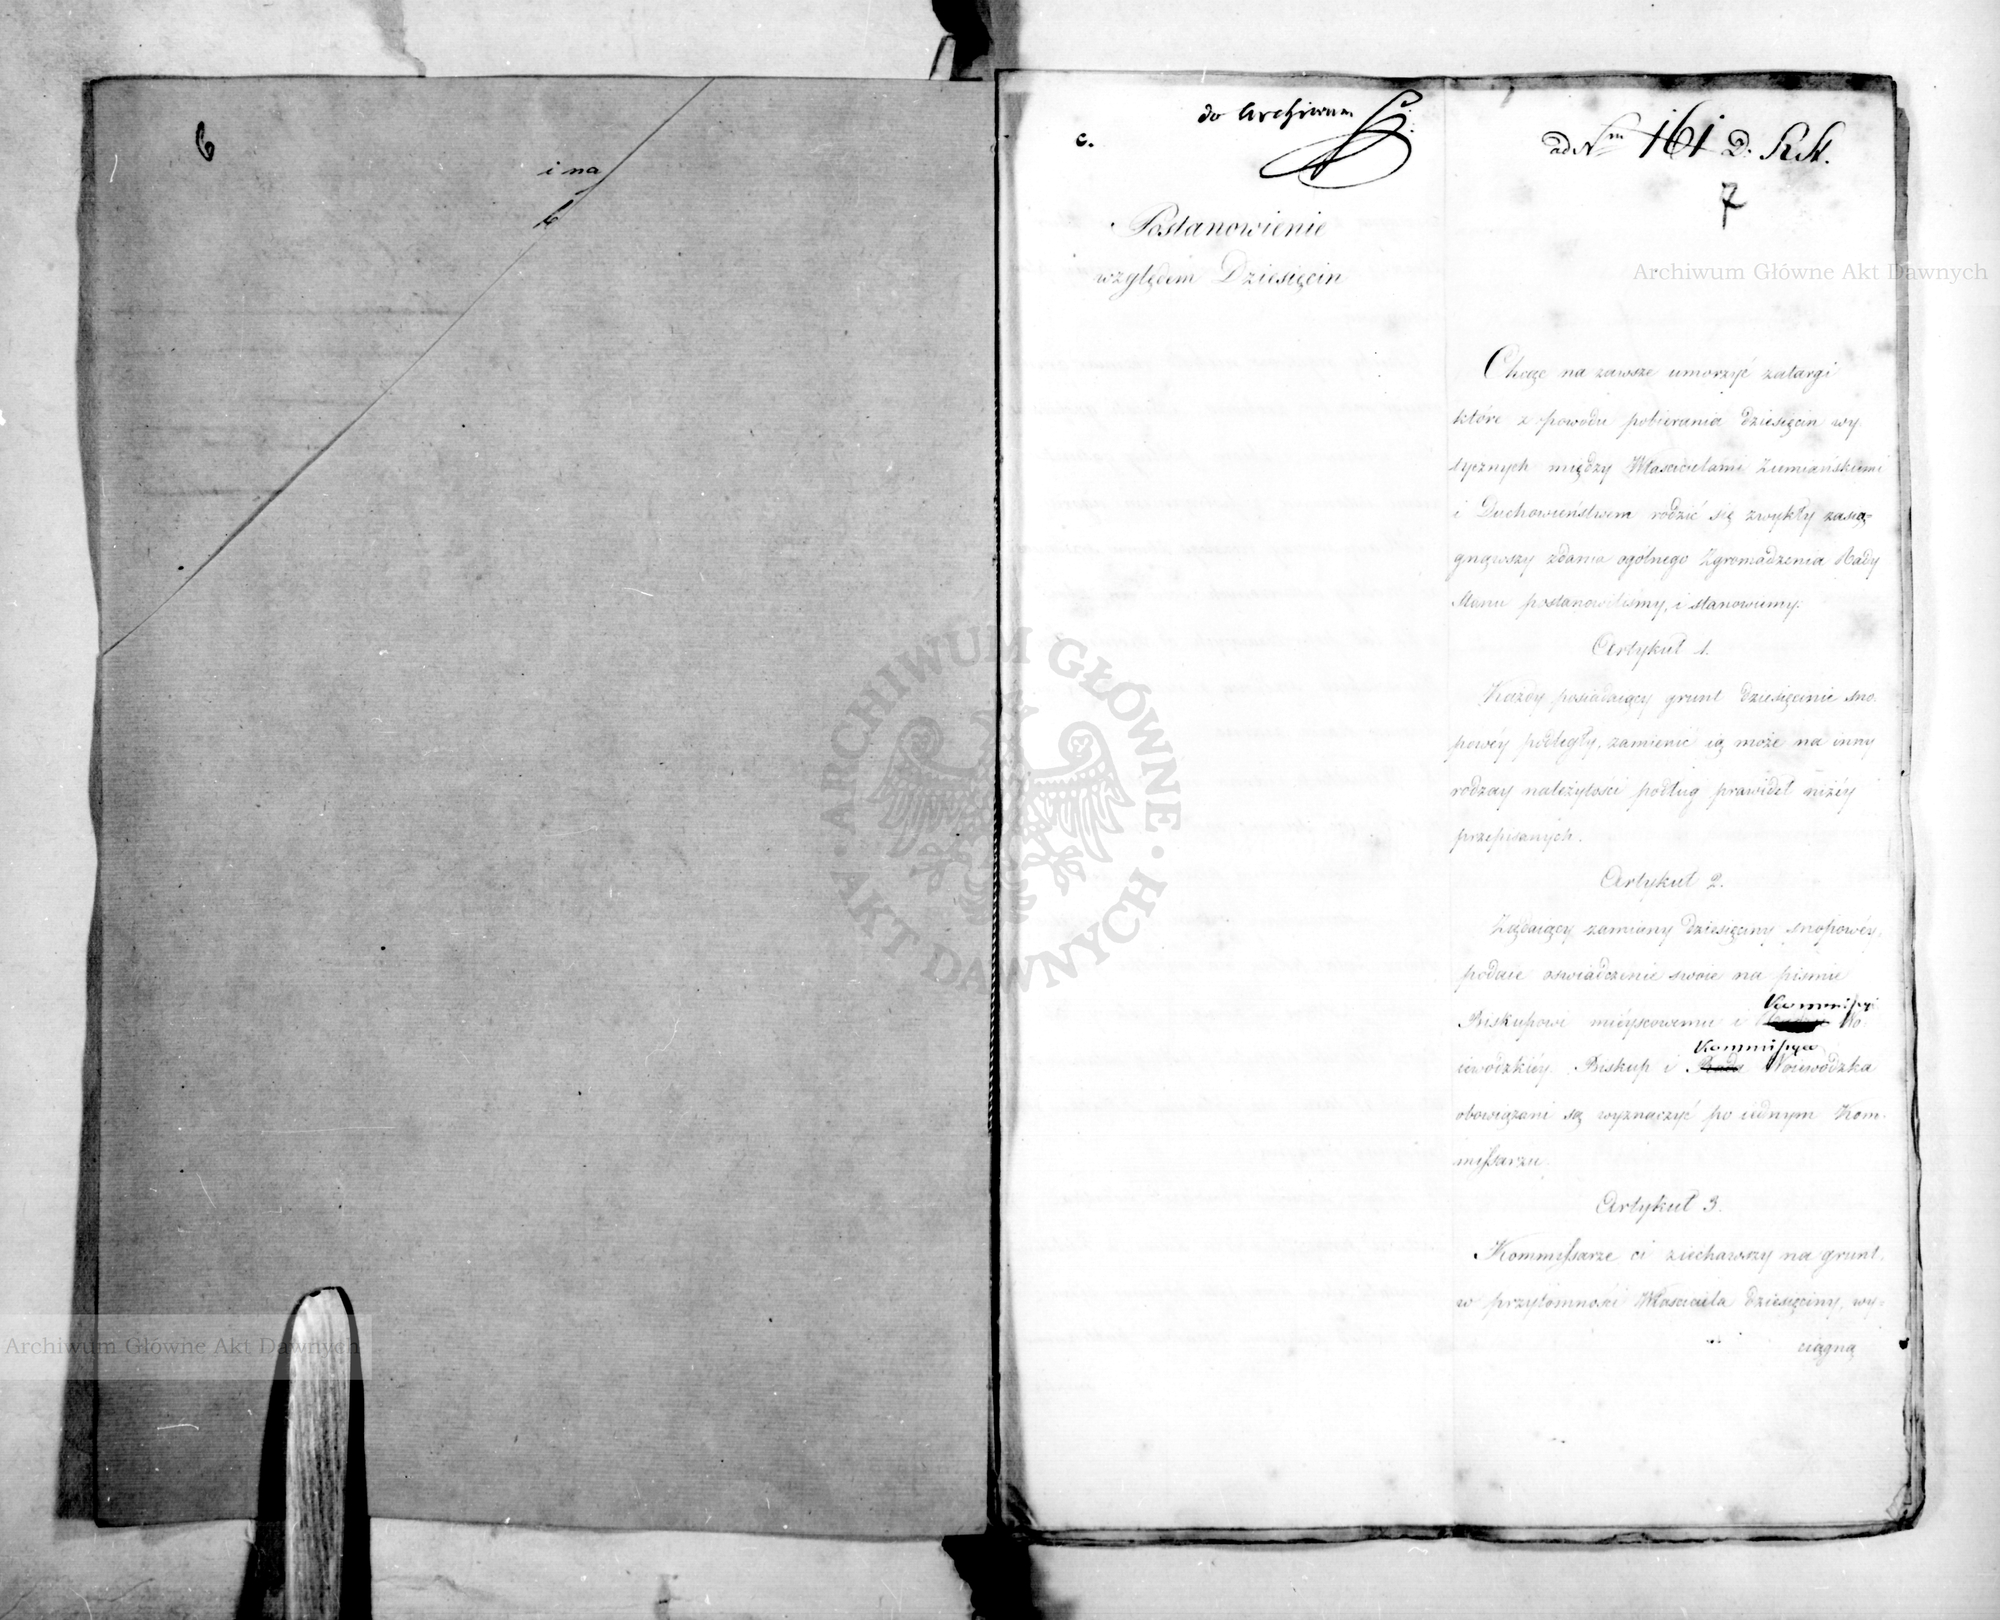 6
i na
do Archiwum
c.
ad Nrm 161 D. K.
7
Postanowienie
względem Dziesięcin
Chcąc na zawsze umorzyć zatargi
które z powodu pobierania dziesięcin wy
tycznych między Właścicielami Ziemiańskiemi
i Duchowieństwem rodzić się zwykły zasią-
gnąwszy zdania ogólnego Zgromadzenia Rady
Stanu postanowiliśmy, i stanowiemy:
Artykuł 1.
Każdy posiadaiący grunt dziesięcinie sno-
powéy podległy, zamienić ią może na inny
rodzay należytości podług prawideł niżéy
przepisanych.
Artykuł 2.
Żądaiący zamiany dziesięciny snopowéy,
podaie oświadczenie swoie na piśmie
Kommissyi
Biskupowi mieyscowemu i Wo-
Kommissya
iewódzkiéy. Biskup i Rada Woiewódzka
obowiązani są wyznaczyć po iednym Kom-
missarzu.
Artykuł 3.
Kommissarze ci ziechawszy na grunt,
w przytomności Właściciela dziesięciny, wy-
ciągną
Archiwum Główne Akt Dawnych
Archiwum Główne Akt Dawnych
ARCHIWUM GŁÓWNE · AKT DAWNYCH ·